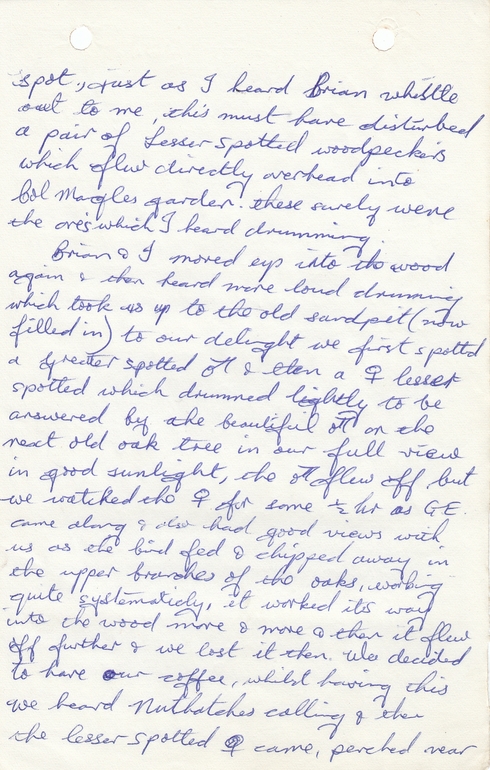 spot, just as I heard Brian whistle
out to me, this must have disturbed
a pair of Lesser spotted woodpeckers
which flew directly overhead into
Col Magles garden. these surely were
the ones which I heard drumming.
Brian & I moved up into the wood
again & then heard more loud drumming
which took us up to the old sandpit (now
filled in) to our delight we first spotted
a Greater spotted ♂ & then a ♀ lesser
spotted which drummed lightly to be
answered by the beautiful ♂ on the
next old oak tree in our full view
in good sunlight, the ♂ flew off but
we watched the ♀ for some ½ hr as G.E.
came along & also had good views with
us as the bird fed & chipped away in
the upper branches of the oaks, working
quite systematicly, it worked its way
into the wood more & more & then it flew
off further & we lost it then. We decided
to have our coffee, whilst having this
we heard Nuthatches calling & then
the lesser spotted ♀ came, perched near